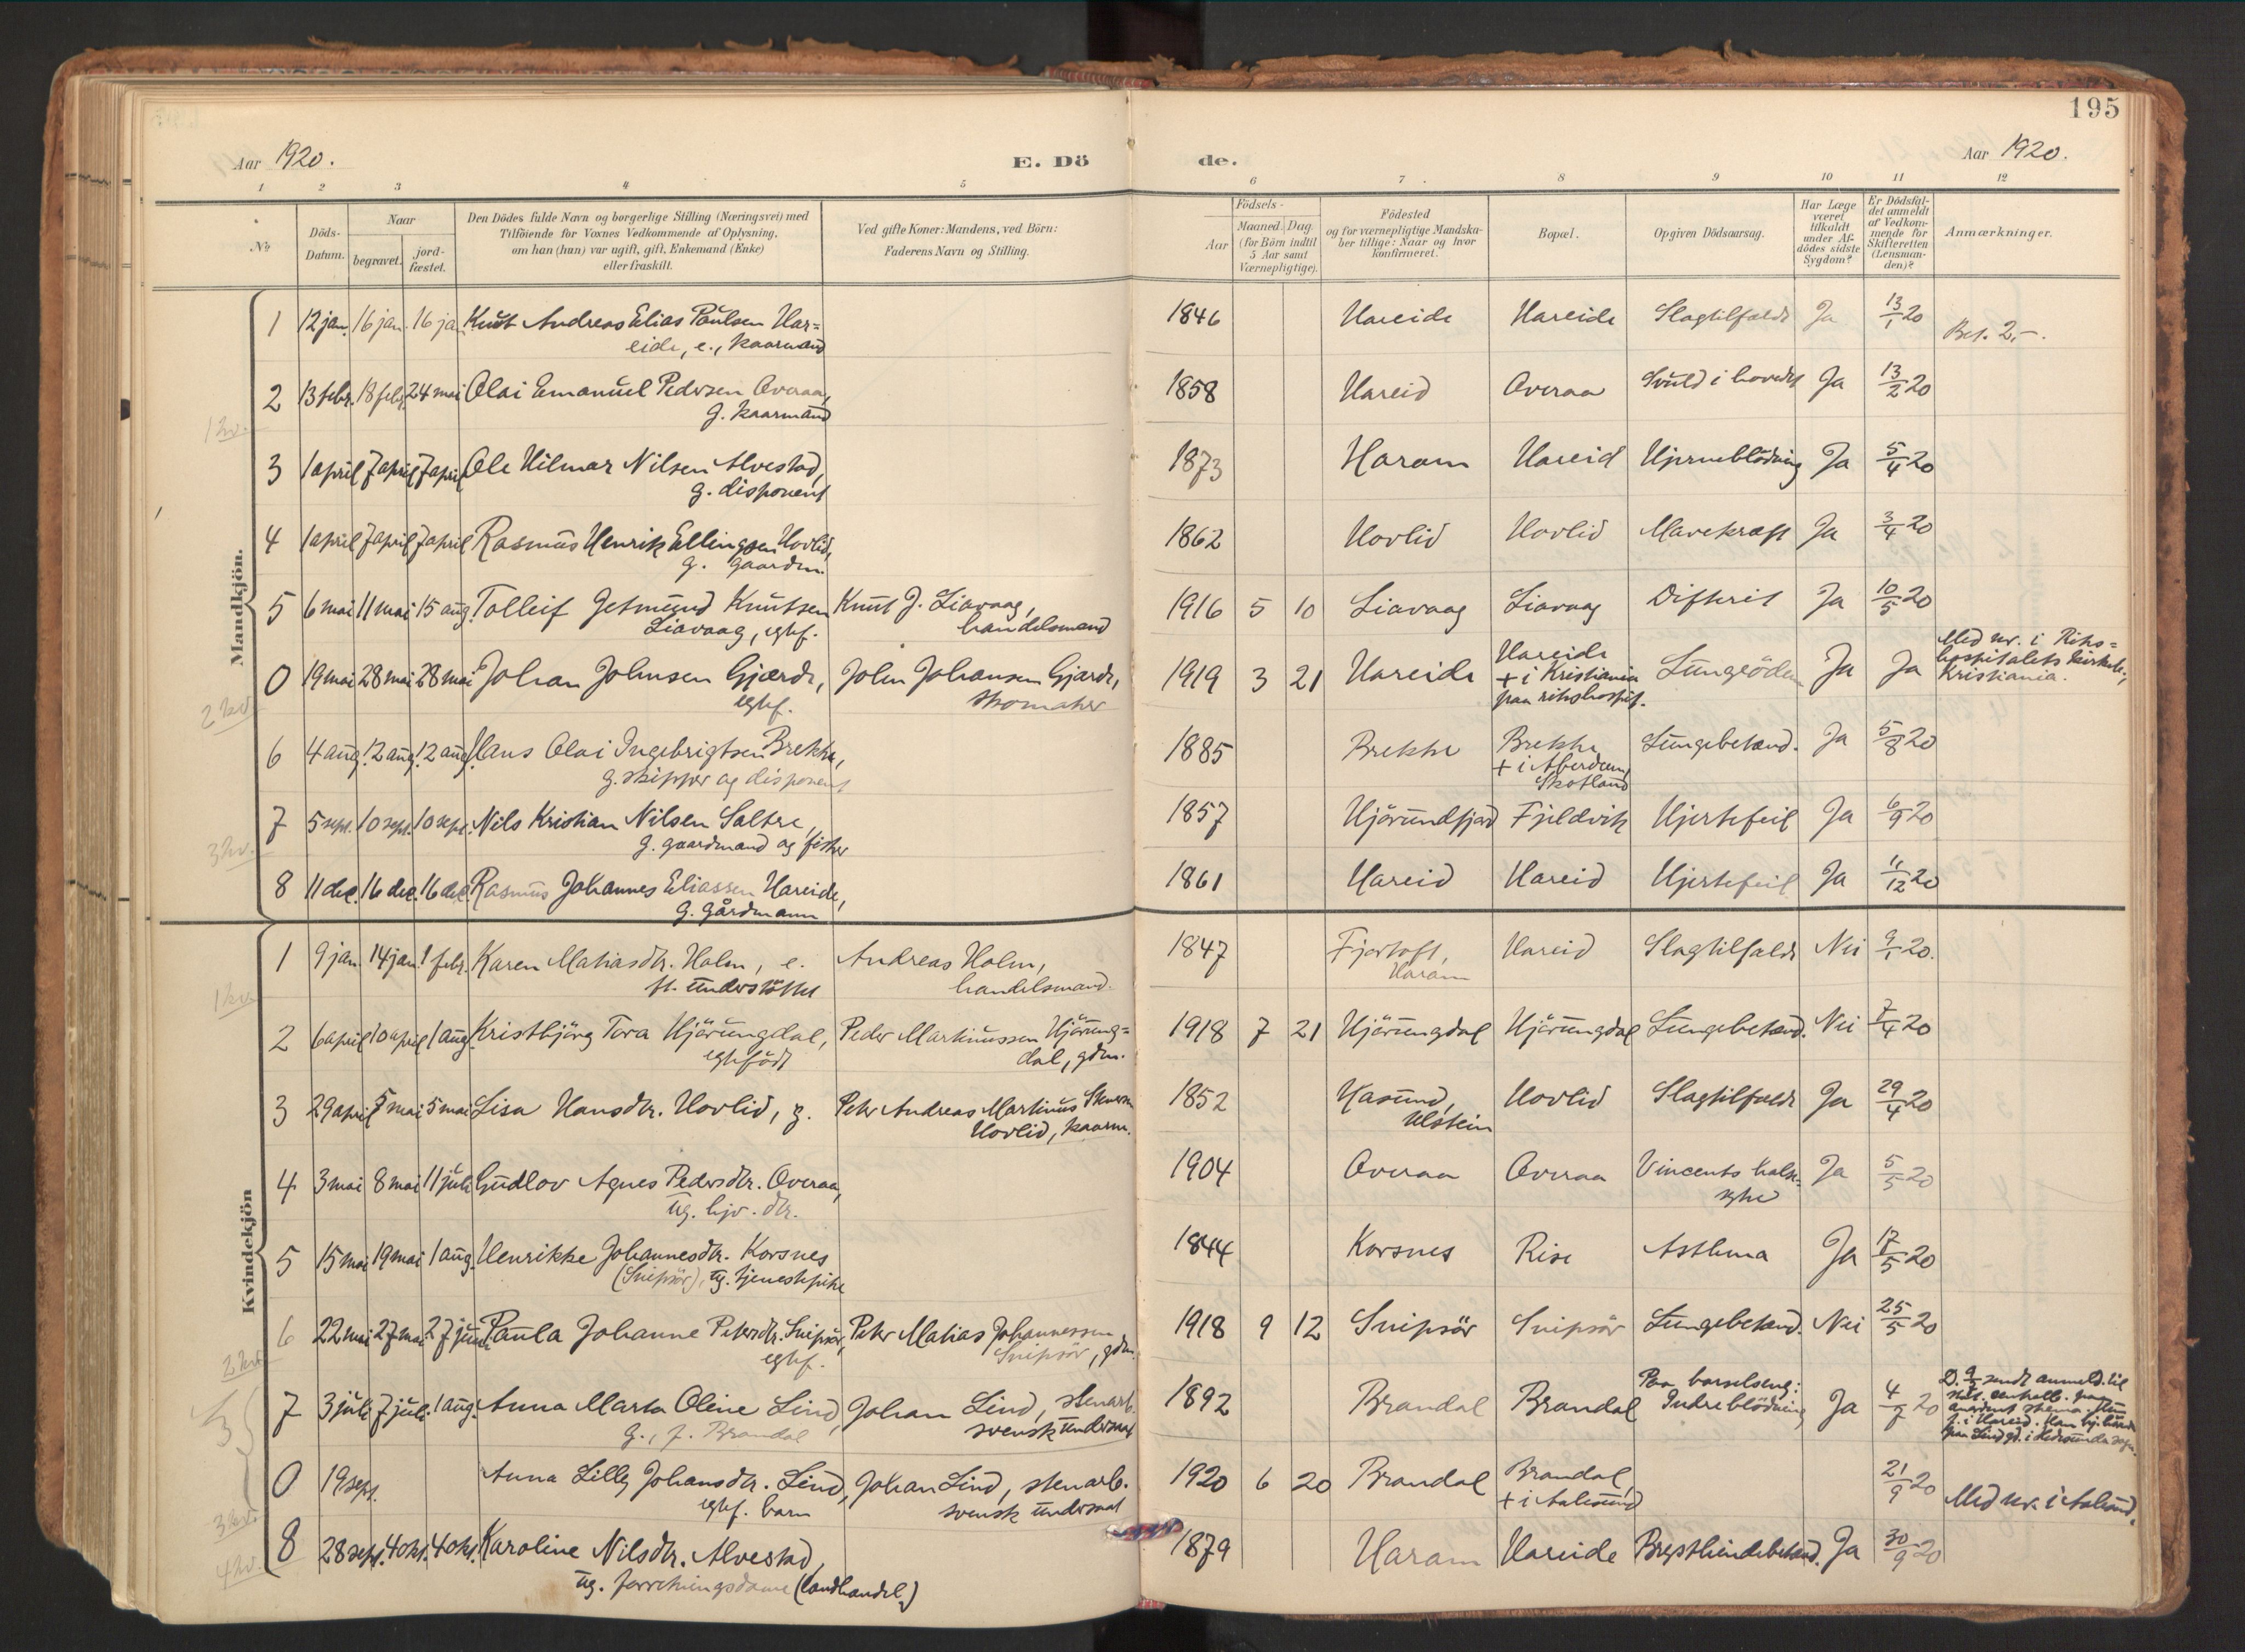 195
Aar 1920.
E. Dö
de.
Aar 1920.
1 2 3 4 5 6 7 8 9 10 11 12
No.
Döds-
Datum.
Naar
begravet.
jord-
fæstet.
Den Dödes fulde Navn og borgerlige Stilling (Næringsvei) med
Tilföiende for Voxnes Vedkommende af Oplysning,
om han (hun) var ugift, gift, Enkemand (Enke)
eller fraskilt.
Ved gifte Koner: Mandens, ved Börn:
Faderens Navn og Stilling.
Födsels-
Aar
Maaned. Dag.
(for Börn indtil
5 Aar samt
Værnepligtige).
Födested
og for værnepligtige Mandska-
ber tillige: Naar og hvor
konfirmeret.
Bopæl.
Opgiven Dödsaarsag.
Har Læge
været
tilkaldt
under Af-
dödes sidste
Sygdom?
Er Dödsfal-
det anmeldt
af Vedkom-
mende for
Skifteretten
(Lensman-
den)?
Anmærkninger.
Mandkjön.
1 12 jan. 16 jan. 16 ja Knut Andreas Elias Paulsen Har= 1846 Hareide Hareide Slagtilfælde Ja 13/1 20
eide, e., kaarmand Bet. 2,-.
2 13 febr. 18 febr. 24 mai Olai Emanuel Pedersen Overaa, 1858 Hareid Overaa Svuld i hovedet Ja 13/2 20
1 kv. g. kaarmand
3 1 april 7 april 7 april Ole Hilmar Nilsen Alvestad, 1873 Haram Hareid Hjerneblödning Ja 5/4 20
g. disponent
4 1 april 7 april 7 april Rasmus Henrik Ellingsen Hovlid, 1862 Hovlid Hovlid Mavekræft Ja 3/4 20
g. gaardm.
5 6 mai 11 mai 15 aug. Tolleif Getmund Knutsen Knut J. Liavaag, 1916 5 10 Liavaag Liavaag Difterit Ja 10/5 20
Liavaag, egtef. handelsmand
0 19 mai 28 mai 28 mai Johan Johnsen Gjærde, John Johansen Gjærde, 1919 3 21 Hareide Hareide Lungeödem Ja Ja Med nr. i Riks=
egtef. skomaker + i Kristiania hospitalets kirkeb.,
2 kv. paa rikshospit. Kristiania.
6 4 aug. 12 aug. 12 aug. Hans Olai Ingebrigtsen Brekke, 1885 Brekke Brekke Lungebetænd. Ja 5/8 20
g. skipper og disponent + i Aberdeen,
Skotland
7 5 sept. 10 sept. 10 sept. Nils Kristian Nilsen Saltre, 1857 Hjörundfjord Fjeldvik Hjertefeil Ja 6/9 20
3 kv. g. gaardmand og fisker
8 11 dec. 16 dec. 16 dec. Rasmus Johannes Eliassen Hareide, 1861 Hareid Hareid Hjertefeil Ja 11/12 20
g. gårdmann
Kvindekjön
1 9 jan. 14 jan. 1 febr. Karen Matiasdtr. Holm, e. Andreas Holm, 1847 Fjortoft, Hareid Slagtilfælde Nei 9/1 20.
1 kv. ft. understöttet handelsmand. Haram
2 6 april 10 april 1 aug. Kristbjörg Tora Hjörungdal, Peder Martinussen Hjörung= 1918 7 21 Hjörungdal Hjörungdal Lungebetænd. Nei 7/4 20
egtefödt dal, gdm.
3 29 april 5 mai 5 mai Lisa Hansdtr. Hovlid, g. Peter Andreas Martinus 1852 Hasund, Hovlid Slagtilfælde Ja 29/4 20
Hovlid, kaarm. Ulstein
4 3 mai 8 mai 11 juli Gudlov Agnes Pedersdtr. Overaa, 1904 Overaa Overaa Vincents hals= Ja 5/5 20
ug. hjv. dtr. syke
5 15 mai 19 mai 1 aug. Henrikke Johannesdtr. Korsnes 1844 Korsnes Rise Asthma Ja 17/5 20
(Snipsör), ug. tjenestepike
6 22 mai 27 mai 27 juni Paula Johanne Petersdtr. Snipsör, Peter Matias Johannessen 1918 9 12 Snipsör Snipsör Lungebetænd. Nei 25/5 20
2 kv. egtef. Snipsör, gdm.
7 3 juli 7 juli 1 aug. Anna Marta Oline Lind, Johan Lind, stenarb. 1892 Brandal Brandal Paa barselseng: Indreblödning Ja 4/7 20 D. 9/7 sendt anmeld. til
g., f. Brandal svensk undersaat
stat. centralb. paa
0 19 sept. Anna Lilly Johansdtr. Lind, Johan Lind, stenarb. 1920 6 20 Brandal Brandal, 21/9 20 Med nr. i Aalesund.
3 kv. egtef. barn svensk undersaat + i Aalesund
8 28 sept. 4 okt. 4 okt. Karoline Nilsdtr. Alvestad, 1879 Haram Hareide Brysthindebetænd. Ja 30/9 20
4 kv. ug. forretningsdame (landhandel)